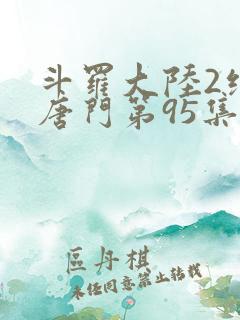 斗羅大陸2絕
唐門第95集
區丹棋
未任同意禁止轉載